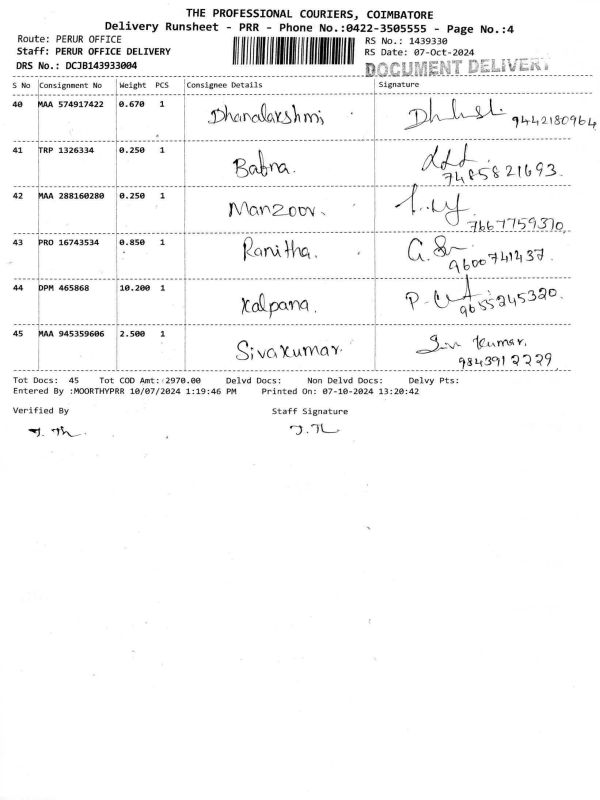 THE PROFESSIONAL COURIERS, COIMBATORE
Delivery Runsheet - PRR - Phone No.:0422-3505555 - Page No.:4
Route: PERUR OFFICE
RS No.: 1439330
Staff: PERUR OFFICE DELIVERY
RS Date: 07-Oct-2024
DRS No.: DCJB143933004
DOCUMENT DELIVERY
S No Consignment No Weight PCS Consignee Details Signature
40 MAA 574917422 0.670 1 Dhanalakshmi 9442180964
41 TRP 1326334 0.250 1 Babna. 7485821693.
42 MAA 288160280 0.250 1 Manzoor. 7667759370.
43 PRO 16743534 0.850 1 Ranitha. 9600741437.
44 DPM 465868 10.200 1 Kalpana. 9655245320.
45 MAA 945359606 2.500 1 Sivakumar. Siva Kumar. 9843912229.
Tot Docs: 45 Tot COD Amt: 2970.00 Delvd Docs: Non Delvd Docs: Delvy Pts:
Entered By :MOORTHYPRR 10/07/2024 1:19:46 PM Printed On: 07-10-2024 13:20:42
Verified By Staff Signature